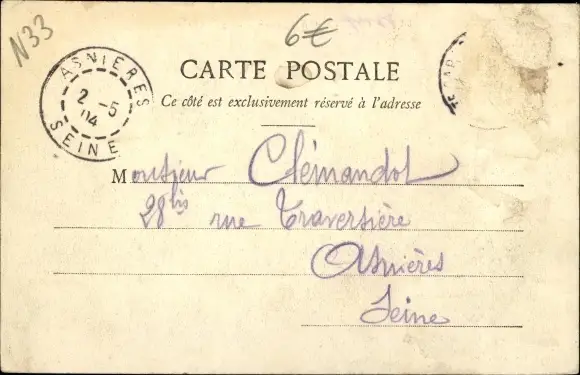 N33
6€
ASNIERES
2 -5
04
SEINE
CARTE POSTALE
Ce côté est exclusivement réservé à l'adresse
Monsieur Clémandot
28bis rue Traversière
Asnières
Seine